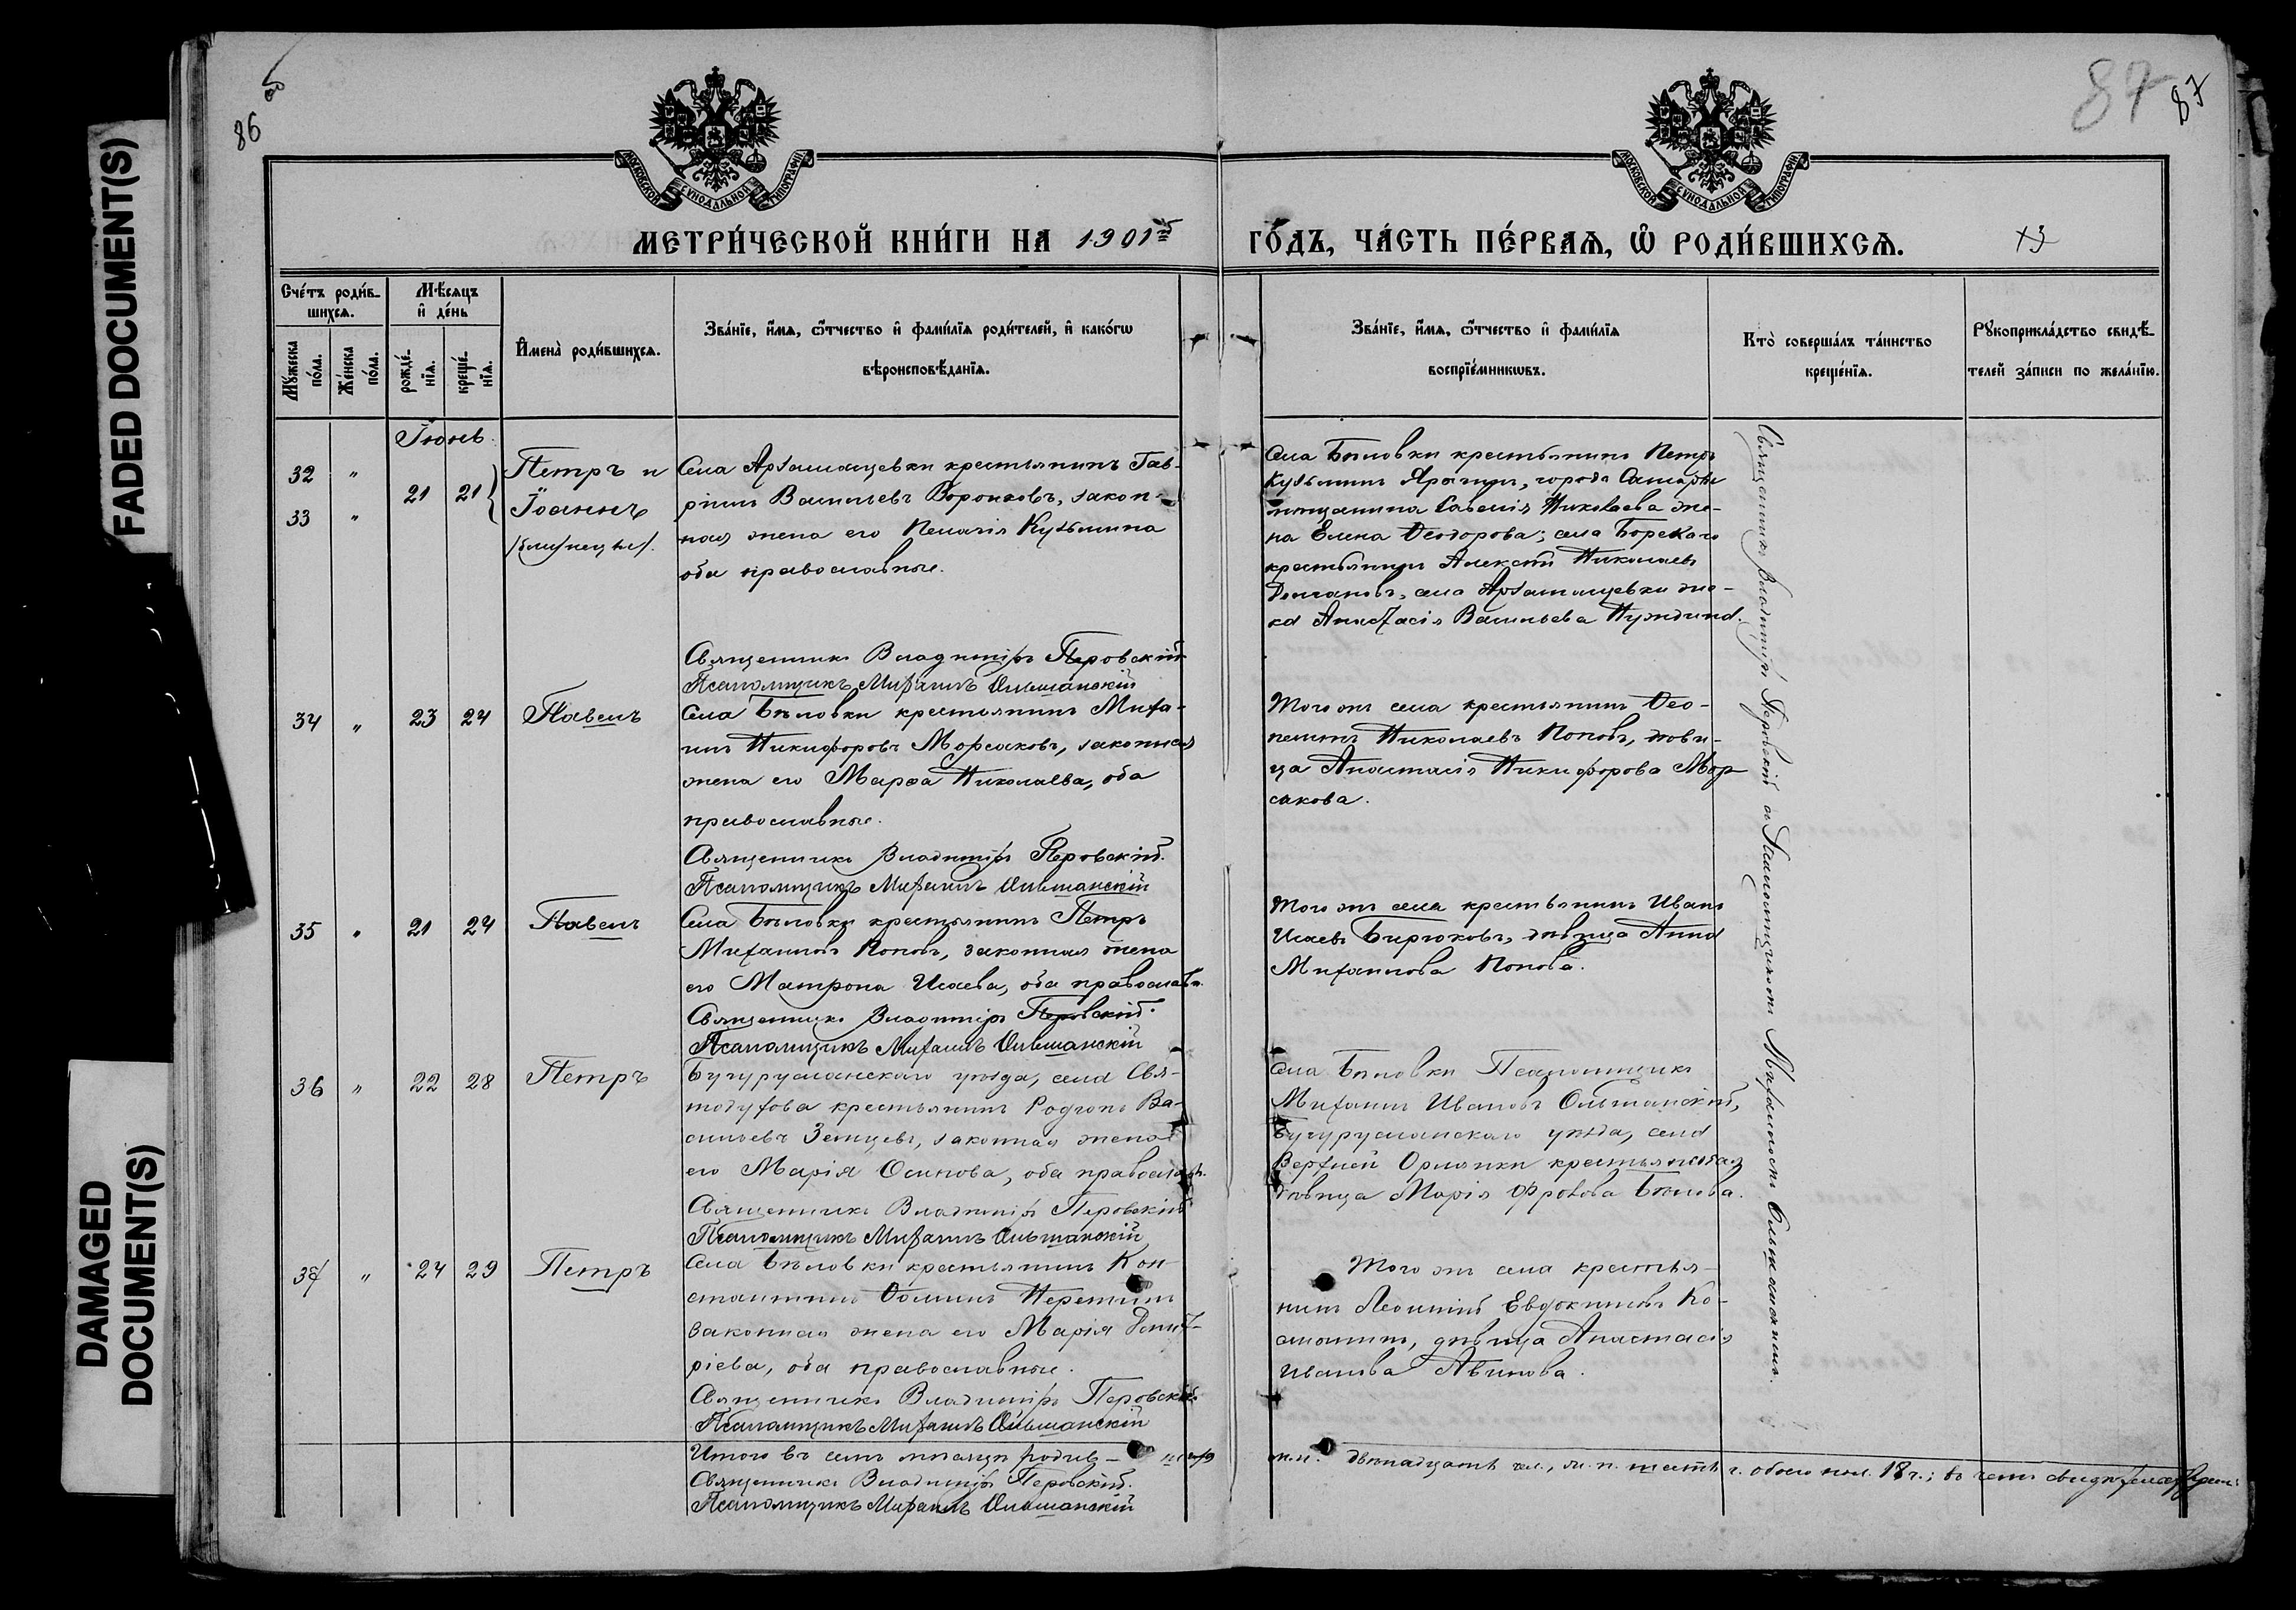 FADED DOCUMENT(S)
DAMAGED
DOCUMENT(S)
86
87
87
МОСКОВСКОЙ СѴНОДАЛЬНОЙ ТИПОГРАФІИ
МОСКОВСКОЙ СѴНОДАЛЬНОЙ ТИПОГРАФІИ
МЕТРИ́ЧЕСКОЙ КНИ́ГИ НА 1901й
ГО́ДЪ, ЧА́СТЬ ПЕ́РВАѦ, Ѡ҆ РОДИ́ВШИХСѦ.
Сче́тъ роди́в-
шихсѧ.
Мꙋ́жеска по́ла.
Же́нска по́ла.
Мѣ́сѧцъ
и҆ де́нь
рожде́-
нїѧ.
креще́-
нїѧ.
И҆мена̀ роди́вшихсѧ.
Зва́нїе, и҆́мѧ, ѻ҆́тчество и҆ фами́лїѧ роди́телей, и҆ како́гѡ
вѣроисповѣ́данїѧ.
Зва́нїе, и҆́мѧ, ѻ҆́тчество и҆ фами́лїѧ
воспрїе́мникѡвъ.
Кто̀ соверша́лъ та́инство
креще́нїѧ.
Рꙋкоприкла́дство свидѣ́-
телей за́писи по жела́нїю.
Іюнь.
32 "
33 "
21 21
Петръ и
Іоаннъ
/близнецы/.
Села Арзамасцевки крестьянинъ Гав-
ріилъ Васильевъ Воронковъ, закон-
ная жена его Пелагія Кузьмина
оба православные.
Священникъ Владиміръ Перовскій
Псаломщикъ Михаилъ Ольшанскій
Села Бѣловки крестьянинъ Петръ
Кузьминъ, города Самары
мѣщанина Савелія Николаева же-
на Елена Ѳеодорова; села Борскаго
крестьянинъ Алексѣй Николаевъ
села Арзамасцевки же-
на Анастасія Васильева Нуждина.
34 " 23 24 Павелъ
Села Бѣловки крестьянинъ Миха-
илъ Никифоровъ Морсаковъ, законная
жена его Марѳа Николаева, оба
православные.
Священникъ Владиміръ Перовскій.
Псаломщикъ Михаилъ Ольшанскій
Того же села крестьянинъ Ѳео-
пемптъ Николаевъ Поповъ, дѣви-
ца Анастасія Никифорова Мор
сакова.
35 " 21 24 Павелъ
Села Бѣловки крестьянинъ Петръ
Михаиловъ Поповъ, законная жена
его Матрона Исаева, оба православн.
Священникъ Владиміръ Перовскій.
Псаломщикъ Михаилъ Ольшанскій
Того же села крестьянинъ Иванъ
Исаевъ Бирюковъ, дѣвица Анна
Михаилова Попова.
36 " 22 28 Петръ
Бугурусланскаго уѣзда, села Свя-
тодухова крестьянинъ Родіонъ Ва-
сильевъ Земцевъ, законная жена
его Марія Осипова, оба православн.
Священникъ Владиміръ Перовскій
Псаломщикъ Михаилъ Ольшанскій
Села Бѣловки Псаломщикъ
Михаилъ Ивановъ Ольшанскій,
Бугурусланскаго уѣзда, села
Верхней Орлянки крестьянская
дѣвица Марія Фролова Бѣлова.
37 " 24 29 Петръ
Села Бѣловки крестьянинъ Кон-
стантинъ Ѳоминъ
законная жена его Марія Димит-
ріева, оба православные.
Священникъ Владиміръ Перовскій.
Псаломщикъ Михаилъ Ольшанскій
Того же села крестья-
нинъ Леонтій Евдокимовъ Ко-
смынинъ, дѣвица Анастасія
Иванова Авинова.
Священникъ Владиміръ Перовскій съ Псаломщикомъ Михаиломъ Ольшанскимъ.
Итого въ семъ мѣсяцѣ родив-
м.п. двѣнадцать чел., ж. п. шесть ч. обоего пол. 18 ч.; въ чемъ
Священникъ Владиміръ Перовскій.
Псаломщикъ Михаилъ Ольшанскій